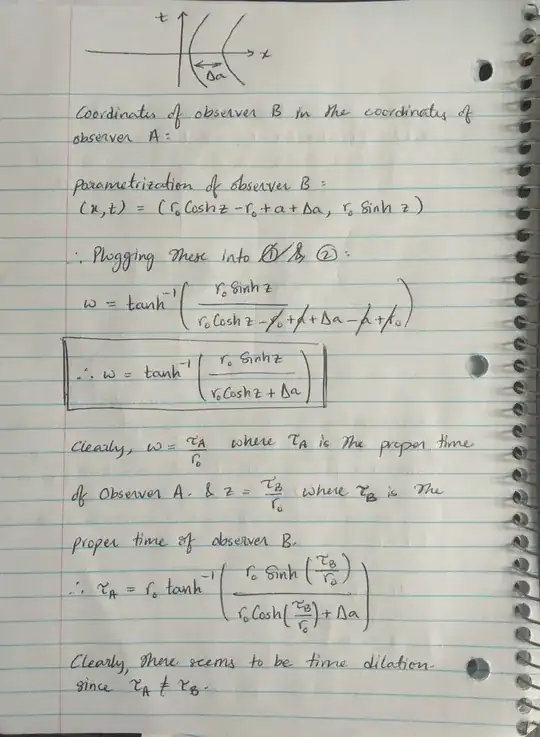 t
x
Δa
Coordinates of observer B in the coordinates of
observer A:
parametrization of observer B:
(x,t) = (r₀Coshz - r₀ + a + Δa, r₀ Sinh z)
∴ Plugging these into ① & ②:
ω = tanh⁻¹( r₀ Sinh z / (r₀ Cosh z - r₀ + a + Δa - a + r₀) )
∴ ω = tanh⁻¹( r₀ Sinhz / (r₀Coshz + Δa) )
Clearly, ω = τ_A / r₀ where τ_A is the proper time
of Observer A. & z = τ_B / r₀ where τ_B is the
proper time of observer B.
∴ τ_A = r₀ tanh⁻¹( r₀ Sinh(τ_B / r₀) / (r₀Cosh(τ_B / r₀) + Δa) )
Clearly, there seems to be time dilation
since τ_A ≠ τ_B.